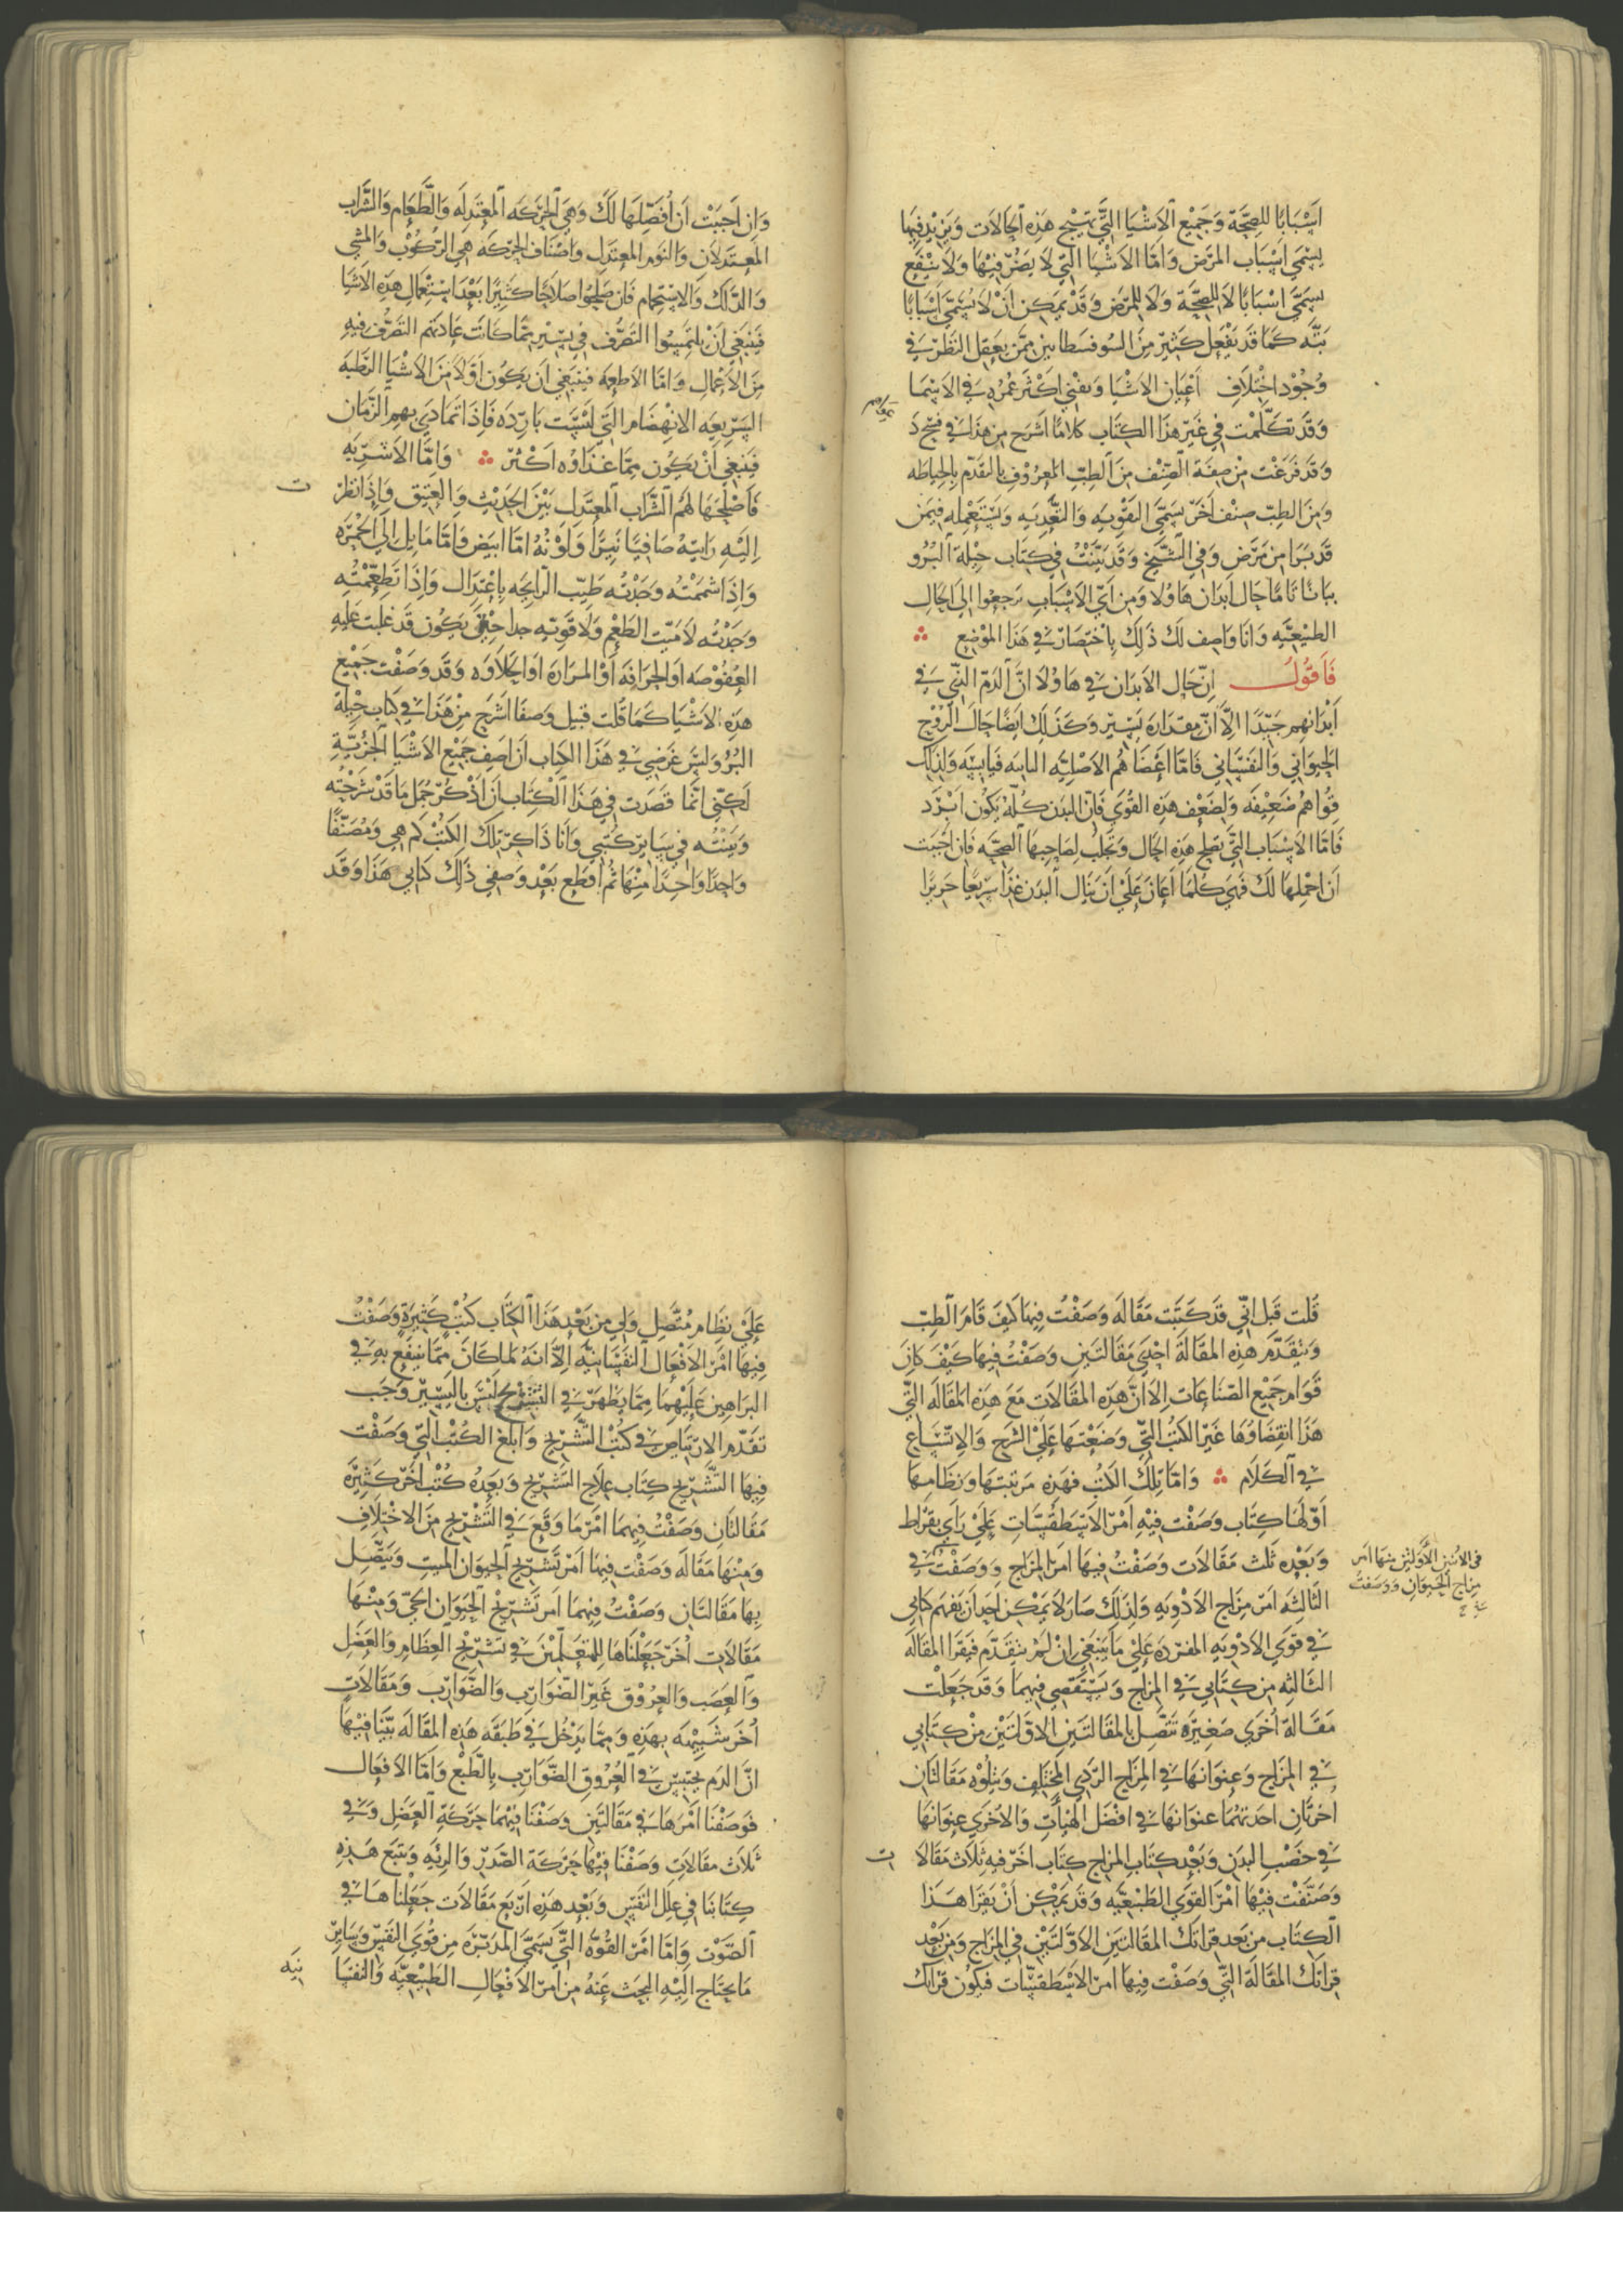 اَسْبَابًا للصِحَّة وَجَمِيْع الاَشْيَا الَتّي تهَيْج هَذِه الحَالاَت وَيَزيْد فِيهَا
يسَمّى اَسْبَاب المرَض وَاَمّا الاَشْيَا التّي لاَ يَضُرّ فيْهَا وَلاَ يَنْفَع
يسَمّى اَسْبَابًا لاَ للصِحَّة وَلاَ للمرَض وَقَدْ يمَكن اَنْ لاَ تُسَمّى اَسْبَابًا
بتَّه كَمَا قَد يَفْعَل كَثيْر مِنَ السُوفسَطاىين ممّن يَعْقِل النَظَر في
وُجُوْد اِخْتِلَاف اَعْيَان الاَشْيَا وَيفْني اَكْثَر عُمْرِه في الاَسْمَا
وَقَد تكَلّمْت في غَيْر هَذا الكِتَاب كَلامًا اَشرَح من هذا في
وَقَد فَرَغْت مِنْ صِفَة الصّنْف مِنَ الطِبّ المَعرُوْف بالتقَدّم بِالحِيَاطَه
وَمنَ الطِبّ صِنْف اَخَر يسَمّى التَقْوِيَه وَالتَّغْدِيَه وَيَسْتَعْمِله فيمَن
قَد بَرَا مِن مَرَض وَفي الشَّيخ وَقَد بَيَّنْتُ في كِتَاب حِيْلَة البُرُو
بيَانًا تَامًّا حَال اَبدَان هَاولا وَمن اَيّ الاَسْبَاب يرَجعُوا الى الحَال
الطَبيْعيَّه وَانَا وَاصِف لَكَ ذَلِكَ بِاختِصَار في هَذَا الموْضِع
فَاقُولُ اِنّ حَال الاَبدَان في هَاوُلا اَنّ الدَمّ الَّذي في
اَبْدَانهِم جَيّدًا اِلاَّ اَنّ مِقدَارَه يَسِيْر وَكَذَلِكَ اَيضًا حَال الرُوْح
الحَيوَانِي وَالنَفسَانِي فَامّا اَعْضَا هُم الاَصْليّه فَيَابِسَه وَلِذلِكَ
قوُاهُم ضَعِيْفَه وَلضَعْف هَذِه القُوَى فَانّ البدَن كُلّه يَكُون اَبرَد
فَامّا الاَسْبَاب التّي تصْلح هَذِه الحَال وَتجْلبُ لصَاحِبهَا الصحّه فَان اَحْبَبت
اَن اجْملهَا لَكَ فَهيَ كُلّمَا اَعَانَ عَلَىْ اَنْ يَنَال البدَن غذَا سَريْعًا حَريْزًا
وَاِن اَحبَبْت اَن اُفَصِّلَهَا لَكَ وَهيَ الحَركَه المُعتَدِلَه وَالطَّعَام وَالشَّراب
المُعتَدِلاَن وَالنَوم المعتَدِل وَاصْنَاف الحَركَه هيَ الركُوْب وَالمَشي
وَالدَّلك وَالاِسْتِحمَام فَان صَلحُوا صَلاَحًا كَثيْرًا بَعْدَ اِسْتِعْمَال هَذِه الاَشيَا
فَيَنبَغي اَنْ يَلتَمِسُوا التَصَرُّف في يَسِيْر ممّا كَانَت عَادَتهم التَصَرُّف فيْهِ
مِنَ الاَعْمَالِ وَامّا الاَطعِمَه فيَنبَغي اَن يَكُون اَوّلاً منَ الاَشْيَا الرَطبَه
السَرّيعَه الاِنهِضَام التّي لَيْسَت بَارِدَه فَاِذَا تمَادَى بهِم الزَّمَان
فَيَنبَغي اَنْ يَكوُن ممّا غذَاوُه اَكْثَر وَامّا الاَشرِبَه
فَاَصْلحهَا لَهُم الشَّرَاب المعْتَدِل بَيْنَ الحَدِيْث وَالعتِيق وَاِذَا نظَرْت
اِليْهِ رَايتهُ صَافِيًا نَيِّرًا وَلَوْنُهُ اِمّا ابيَض وَامّا مَايل اِلى الحُمْرَه
وَاِذَا شمَمْتهُ وَجَدْتُه طَيّب الرايحَه بِاِعْتِدَال وَاِذَا تطَعّمْتُه
وَجَدْتُه لاَ مَيّت الطَعْم وَلاَ قَوِيّه جِدا حَتّي يَكوُن قَد غلبَت عَليهِ
العُفوْصَه اَوِ الحَرَافَه اَوْ المرَارَه اَوِ الحَلاَوَه وَقَد وَصَفْت جَمِيْع
هَذِه الاَشْيَا كَمَا قُلت قبيل وَصفًا اَشرَح مِنْ هَذَا في كتَاب حِيْلة
البُرُو وَليْسَ غَرَضي في هَذَا الكِتاب اَن اَصِف جَميْع الاَشْيَا الجزُئيّةِ
لَكنّي اِنمّا قصَدت في هَذَا الكِتَاب اَن اَذْكُر جُمَل مَا قَدْ شَرَحْتُه
وَبَيَّنْتُه في سَايِر كُتبي وَانَا ذَاكِر تِلكَ الكتُبْ كَم هِي وَمُصَنّفًا
وَاحِدًا وَاحِدًا مِنْهَا ثُمّ اَقطَع بَعْدَ وَصفي ذَلِكَ كتابي هَذَا وَقَد
قُلت قَبل اِنّي قَد كَتَبْت مَقَالَه وَصَفْتُ فِيهَا كَيفَ قَامَ الطِبّ
وَيَتقَدّم هَذِه المقَالَة اِحْدَى مَقَالتَينِ وَصَفْتُ فيهَا كَيْفَ كَانَ
قَوَام جَميْع الصّنَاعَات اِلاَّ اَنّ هَذِه المقَالاَت مَعَ هَذِه المقَالَه التّي
هَذَا اِنقِضَاوُهَا غَيْر الكتُب التّي وَضَعْتهَا عَلَى الشَرح وَالاِتّسَاع
في الكَلاَم وَامّا تِلكَ الكتُب فهَذِه مَرتبَتهَا وَنظَامهَا
اَوّلهَا كِتَاب وَصَفْت فيْهِ اَمْرَ الاسْطقسَّات عَلَى رَاي بقرَاط
وَبَعْدِه ثَلث مَقَالاَت وَصَفْتُ فيهَا اَمرَ المزَاج وَوصَفْتُ في
فى الاثنين الاَوّلتين منهَا امر
مزاج الحَيوَانِ وَوَصَفتُ
الثالِثَه اَمرَ مزَاج الاَدْوِيَهِ وَلِذَلِكَ صَارَ لاَ يمْكن اَحَدًا اَن يَفهَم كتَابي
في قوَى الاَدْوِيَه المفرَدَه عَلَى مَا يَنبَغي اِنْ لَمْ يتقَدّم فَيَقرَا المقَالَه
الثَالِثه مِن كِتَابي في المزَاج وَيَستَقْصي فيهمَا وَقَد جَعَلْت
مَقَالَةَ اُخرَى صَغِيرَه تَتّصِل بِالمقَالتَينِ الاَوّلَتَيْن مِنْ كِتَابي
في المزَاج وَعِنوَانهَا في المِزَاج الرّدَي المختَلِف وَيتلوْه مَقَالتَان
اخرتَانِ احدَتهُمَا عنوَانهَا في اَفْضَل الهَيْاَت وَالاُخرَى عِنوَانهَا
في خصْب البَدَن وَبَعْدَ كتَاب المزَاج كِتَاب اخَر فيه ثَلاَث مَقَالاَ
ت
وَصَنَّفْت فيْهَا اَمْرَ القوَى الطَبْيعِيَّه وَقَد يمْكن اَنْ يَقرَا هَذَا
الكِتَاب من بَعد قراتكَ المقَالتَينِ الاَوّلَتَيْن في المِزَاج وَمِن بَعْد
قراتكَ المقَالَة التّي وَصَفْت فيهَا امرَ الاسْطَقسَّات فيَكوُن قراتك
عَلَى نظَام مُتّصِل وَلي مِن بَعْد هَذَا الكِتَاب كتُبْ كَثيرَة وَصَفْتُ
فيهَا اَمْرَ الاَفْعَال النَفسَانيّه اِلاَّ اَنهُ لمّا كَانَ ممّا ينتفَع بهِ في
البرَاهِين عَليْهمَا ممّا يَظْهَر في التَشريْح لَيْسَ بِاليَسِيْر وَجَب
تقَدّم الارتيَاض في كتُب التَّشريْح وَابلغ الكتُب التّي وَصَفْت
فيهَا التَّشريْح كِتَاب عِلاَج التَشريْح وَبَعدَهُ كتُب اُخَر كَثيْرَه
مَقَالتَانِ وَصَفْتُ فيهمَا اَمْرَ مَا وَقَع في التَشريْح مِنَ الاخْتِلاَفِ
وَمنْهَا مَقَالَه وَصَفْت فيهَا اَمْرَ تَشرِيْح الحَيوَان الميت وَيَتّصِل
بهَا مَقَالتَان وَصَفْتُ فيهمَا اَمر تَشرِيْح الحَيوَان الحَيّ وَمنْهَا
مَقَالاَت اُخَر جَعَلْنَاهَا لِلمتعَلّمْيْنَ في تشرِيْح العِظَام وَالعَضَل
وَالعصَب وَالعرُوْق غَيْر الضَوَارِب وَالضَّوَارِب وَمَقَالاَت
اُخَر شَبِيْهَه بهذِه وَممّا يَدْخُل في طَبَقَه هَذِه المقَالَه بَيّنَا فيْهَا
انّ الدَم يحْتَبسُ في العُرُوْق الضَّوَارِب بِالطَبْع وَاَمّا الاَفْعَال
فوَصَفْنَا اَمْرَهَا في مَقَالتَينِ وَصَفْنَا فيْهمَا حَركَةَ العَضَل وَفي
ثَلاَث مَقَالاَت وَصَفْنَا فيْهَا حَركَة الصَدْر وَالرِئَه وَتتبَع هَذِه
كِتَابنَا في عِلَل النفَس وَبَعْد هَذِه اَرْبَع مَقَالاَت جَعَلْنَاهَا في
الصَّوْت وَامّا اَمرَ القُوَّه التّي تسَمّى المدَبّرَه مِن قُوَى النفَس وَسَايِر
مَا يحتَاج اِليْهِ البَحث عَنْهُ مِن اَمرِ الاَفْعَالِ الطَبْيعِيّه وَالنفسَا
نيَه